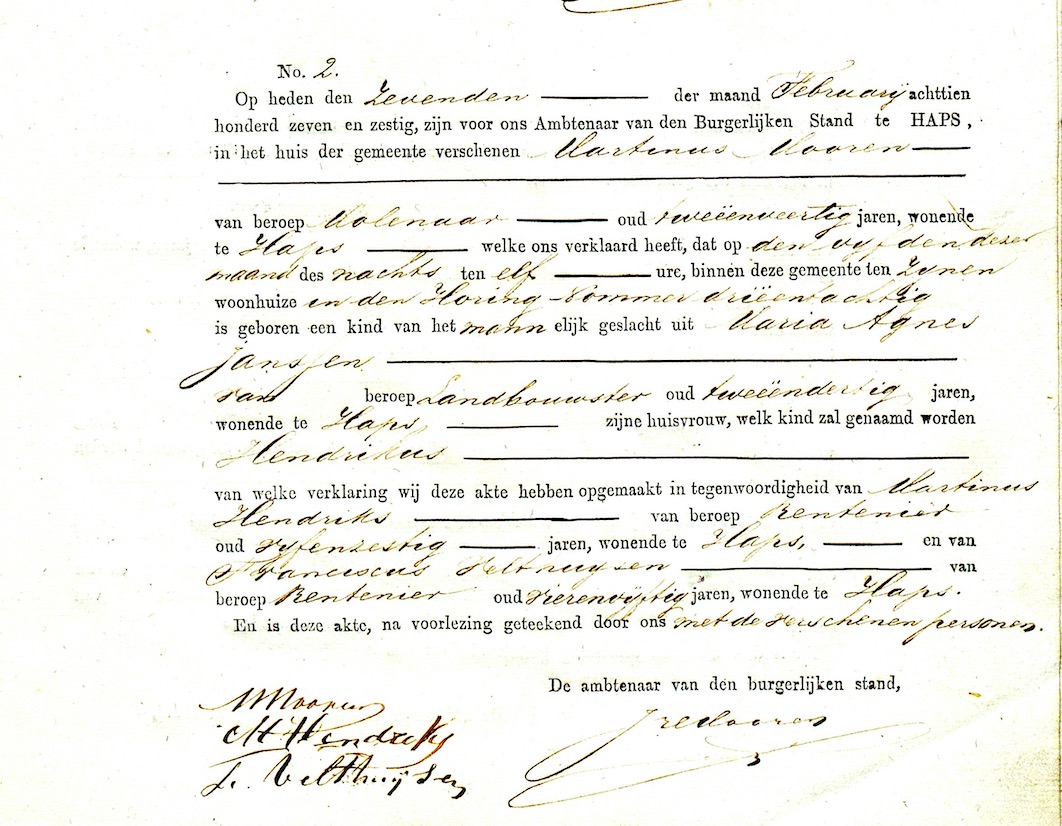 No. 2.
Op heden den Zevenden der maand February achttien
honderd zeven en zestig, zijn voor ons Ambtenaar van den Burgerlijken Stand te HAPS,
in het huis der gemeente verschenen Martinus Mooren
van beroep Molenaar oud tweëenveertig jaren, wonende
te Haps welke ons verklaard heeft, dat op den vyfden dezer
maand des nachts ten elf ure, binnen deze gemeente ten Zynen
woonhuize in den Horing - Nommer drieëntachtig
is geboren een kind van het mann elijk geslacht uit Maria Agnes
Janssen
van beroep Landbouwster oud tweeëndertig jaren,
wonende te Haps, zijne huisvrouw, welk kind zal genaamd worden
Hendrikus
van welke verklaring wij deze akte hebben opgemaakt in tegenwoordigheid van Martinus
Hendriks van beroep Rentenier
oud vyfenzestig jaren, wonende te Haps, en van
Franciscus Velthuysen van
beroep Rentenier oud vierenvyftig jaren, wonende te Haps.
En is deze akte, na voorlezing geteekend door ons met de verschenen personen.
De ambtenaar van den burgerlijken stand,
M Mooren
M Hendriks
F. Velthuijsen